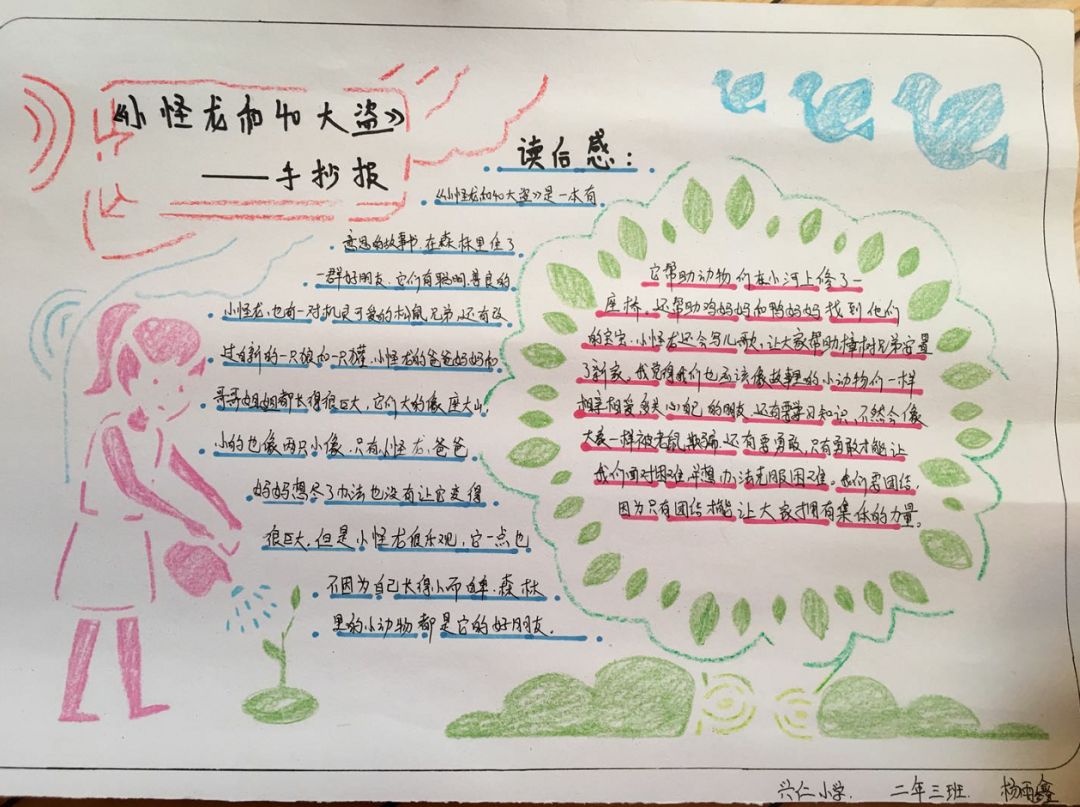 《小怪龙和40大盗》
——手抄报
读后感：
《小怪龙和40大盗》是一本有
意思的故事书.在森林里住了
一群好朋友.它们有聪明.善良的
小怪龙,也有一对机灵可爱的松鼠兄弟,还有改
过自新的一只狼和一只獾.小怪龙的爸爸妈妈和
哥哥姐姐都长得很巨大,它们大的像座大山.
小的也像两只小像.只有小怪龙.爸爸
妈妈想尽了办法也没有让它变得
很巨大.但是小怪龙很乐观,它一点也
不因为自己长得小而自卑.森林
里的小动物都是它的好朋友.
它帮助动物们在小河上修了一
座桥.还帮助鸡妈妈和鸭妈妈找到他们
的宝宝.小怪龙还会写儿歌,让大家帮助松树兄弟安置
了新家.我觉得我们也应该像故事里的小动物们一样
相亲相爱关心自己的朋友.还有要学习知识,不然会像
大表一样被老鼠欺骗.还有要勇敢,只有勇敢才能让
我们面对困难并想办法克服困难。我们要团结,
因为只有团结才能让大家才拥有集体的力量。
兴仁小学. 二年三班. 杨雨鑫